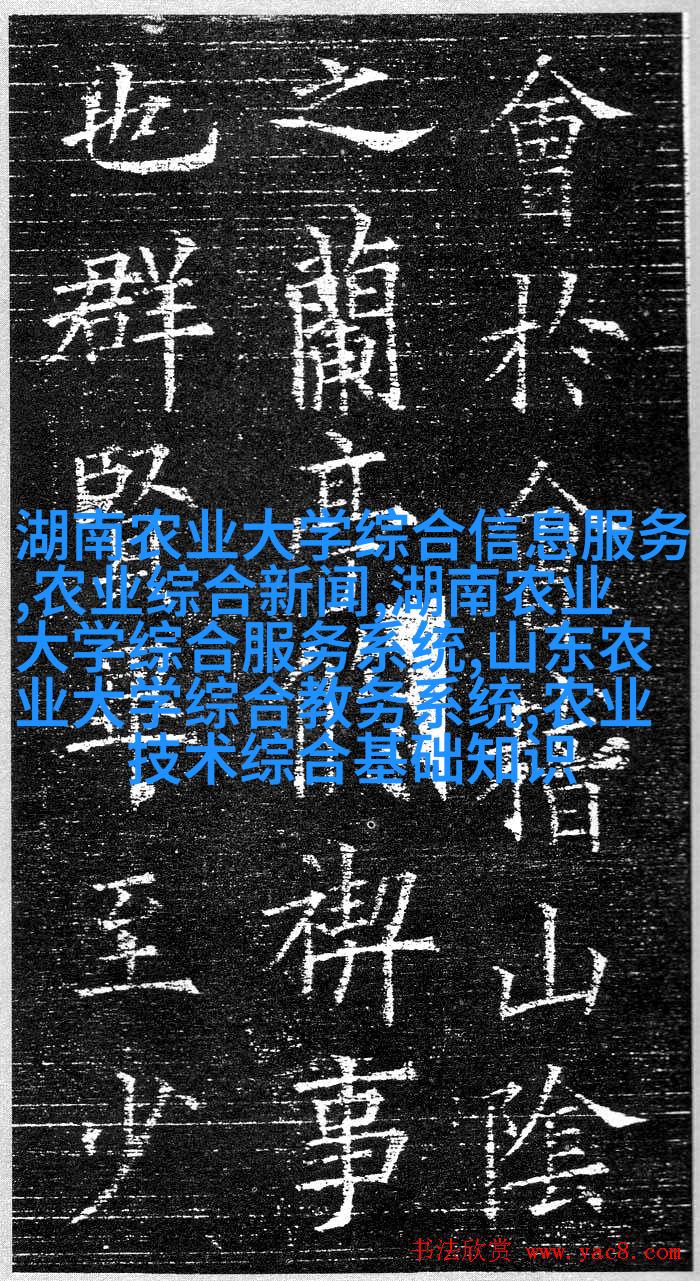 會於會稽山陰
之蘭亭脩禊事
也群賢畢至少
湖南农业大学综合信息服务
,农业综合新闻,湖南农业
大学综合服务系统,山东农
业大学综合教务系统,农业
技术综合基础知识
书法欣赏 www.yac8.com